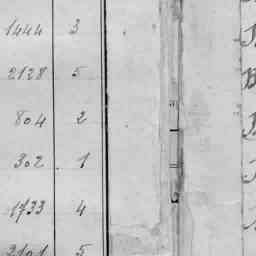 1444 3
2128 5
804 2
302 1
1733 4
2101 5